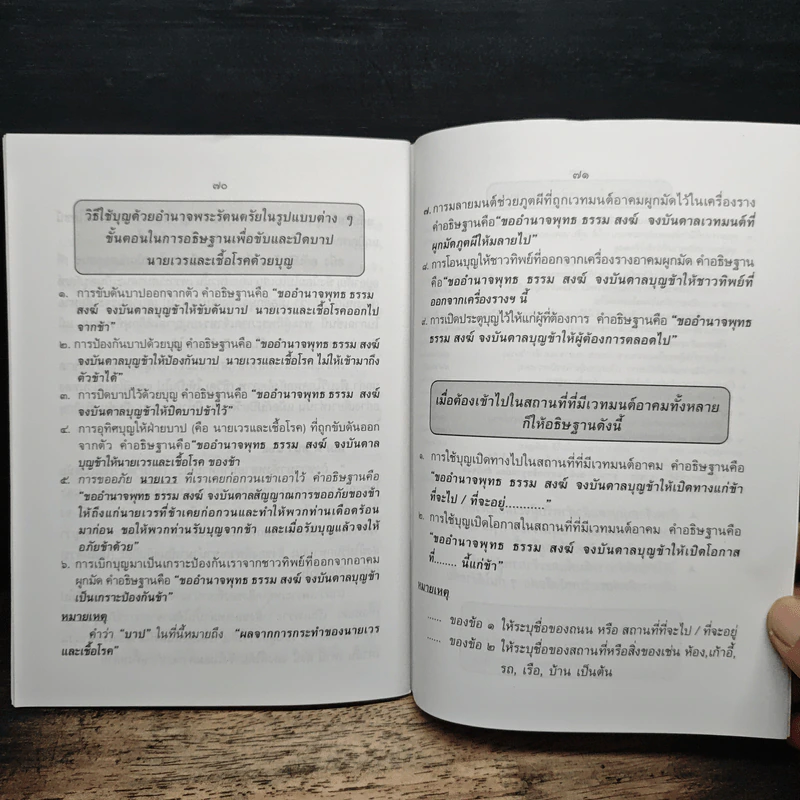 ๗๐
วิธีใช้บุญด้วยอำนาจพระรัตนตรัยในรูปแบบต่าง ๆ
ขั้นตอนในการอธิษฐานเพื่อขับและปิดบาป
นายเวรและเชื้อโรคด้วยบุญ
๑. การขับดันบาปออกจากตัว คำอธิษฐานคือ "ขออำนาจพุทธ ธรรม
สงฆ์ จงบันดาลบุญข้าให้ขับดันบาป นายเวรและเชื้อโรคออกไป
จากข้า"
๒. การป้องกันบาปด้วยบุญ คำอธิษฐานคือ "ขออำนาจพุทธ ธรรม สงฆ์
จงบันดาลบุญข้าให้ป้องกันบาป นายเวรและเชื้อโรค ไม่ให้เข้ามาถึง
ตัวข้าได้"
๓. การปิดบาปไว้ด้วยบุญ คำอธิษฐานคือ "ขออำนาจพุทธ ธรรม สงฆ์
จงบันดาลบุญข้าให้ปิดบาปข้าไว้"
๔. การอุทิศบุญให้ฝ่ายบาป (คือ นายเวรและเชื้อโรค) ที่ถูกขับดันออก
จากตัว คำอธิษฐานคือ"ขออำนาจพุทธ ธรรม สงฆ์ จงบันดาล
บุญข้าให้นายเวรและเชื้อโรค ของข้า
๕. การขออภัย นายเวร ที่เราเคยก่อกวนเข่าเอาไว้ คำอธิษฐานคือ
"ขออำนาจพุทธ ธรรม สงฆ์ จงบันดาลสัญญาณการขออภัยของข้า
ให้ถึงแก่นายเวรที่ข้าเคยก่อกวนและทำให้พวกท่านเดือดร้อน
มาก่อน ขอให้พวกท่านรับบุญจากข้า และเมื่อรับบุญแล้วจงให้
อภัยข้าด้วย"
๖. การเบิกบุญมาเป็นเกราะป้องกันเราจากชาวทิพย์ที่ออกจากอาคม
ผูกมัด คำอธิษฐานคือ "ขออำนาจพุทธ ธรรม สงฆ์ จงบันดาลบุญข้า
เป็นเกราะป้องกันข้า"
หมายเหตุ
คำว่า "บาป" ในที่นี้หมายถึง "ผลจากการกระทำของนายเวร
และเชื้อโรค"
๗๑
๗. การมลายมนต์ช่วยภูตผีที่ถูกเวทมนต์อาคมผูกมัดไว้ในเครื่องราง
คำอธิษฐานคือ"ขออำนาจพุทธ ธรรม สงฆ์ จงบันดาลเวทมนต์ที่
ผูกมัดภูตผีให้มลายไป"
๘. การโอนบุญให้ชาวทิพย์ที่ออกจากเครื่องรางอาคมผูกมัด คำอธิษฐาน
คือ"ขออำนาจพุทธ ธรรม สงฆ์ จงบันดาลบุญข้าให้ชาวทิพย์ที่
ออกจากเครื่องรางฯ นี้
๙. การเปิดประตูบุญไว้ให้แก่ผู้ที่ต้องการ คำอธิษฐานคือ "ขออำนาจพุทธ
ธรรม สงฆ์ จงบันดาลบุญข้าให้ผู้ต้องการตลอดไป"
เมื่อต้องเข้าไปในสถานที่ที่มีเวทมนต์อาคมทั้งหลาย
ก็ให้อธิษฐานดังนี้
๑. การใช้บุญเปิดทางไปในสถานที่ที่มีเวทมนต์อาคม คำอธิษฐานคือ
"ขออำนาจพุทธ ธรรม สงฆ์ จงบันดาลบุญข้าให้เปิดทางแก่ข้า
ที่จะไป / ที่จะอยู่..........."
๒. การใช้บุญเปิดโอกาสในสถานที่ที่มีเวทมนต์อาคม คำอธิษฐานคือ
"ขออำนาจพุทธ ธรรม สงฆ์ จงบันดาลบุญข้าให้เปิดโอกาส
ที่........ นี้แก่ข้า"
หมายเหตุ
..... ของข้อ ๑ ให้ระบุชื่อของถนน หรือ สถานที่ที่จะไป / ที่จะอยู่
..... ของข้อ ๒ ให้ระบุชื่อของสถานที่หรือสิ่งของเช่น ห้อง,เก้าอี้,
รถ, เรือ, บ้าน เป็นต้น